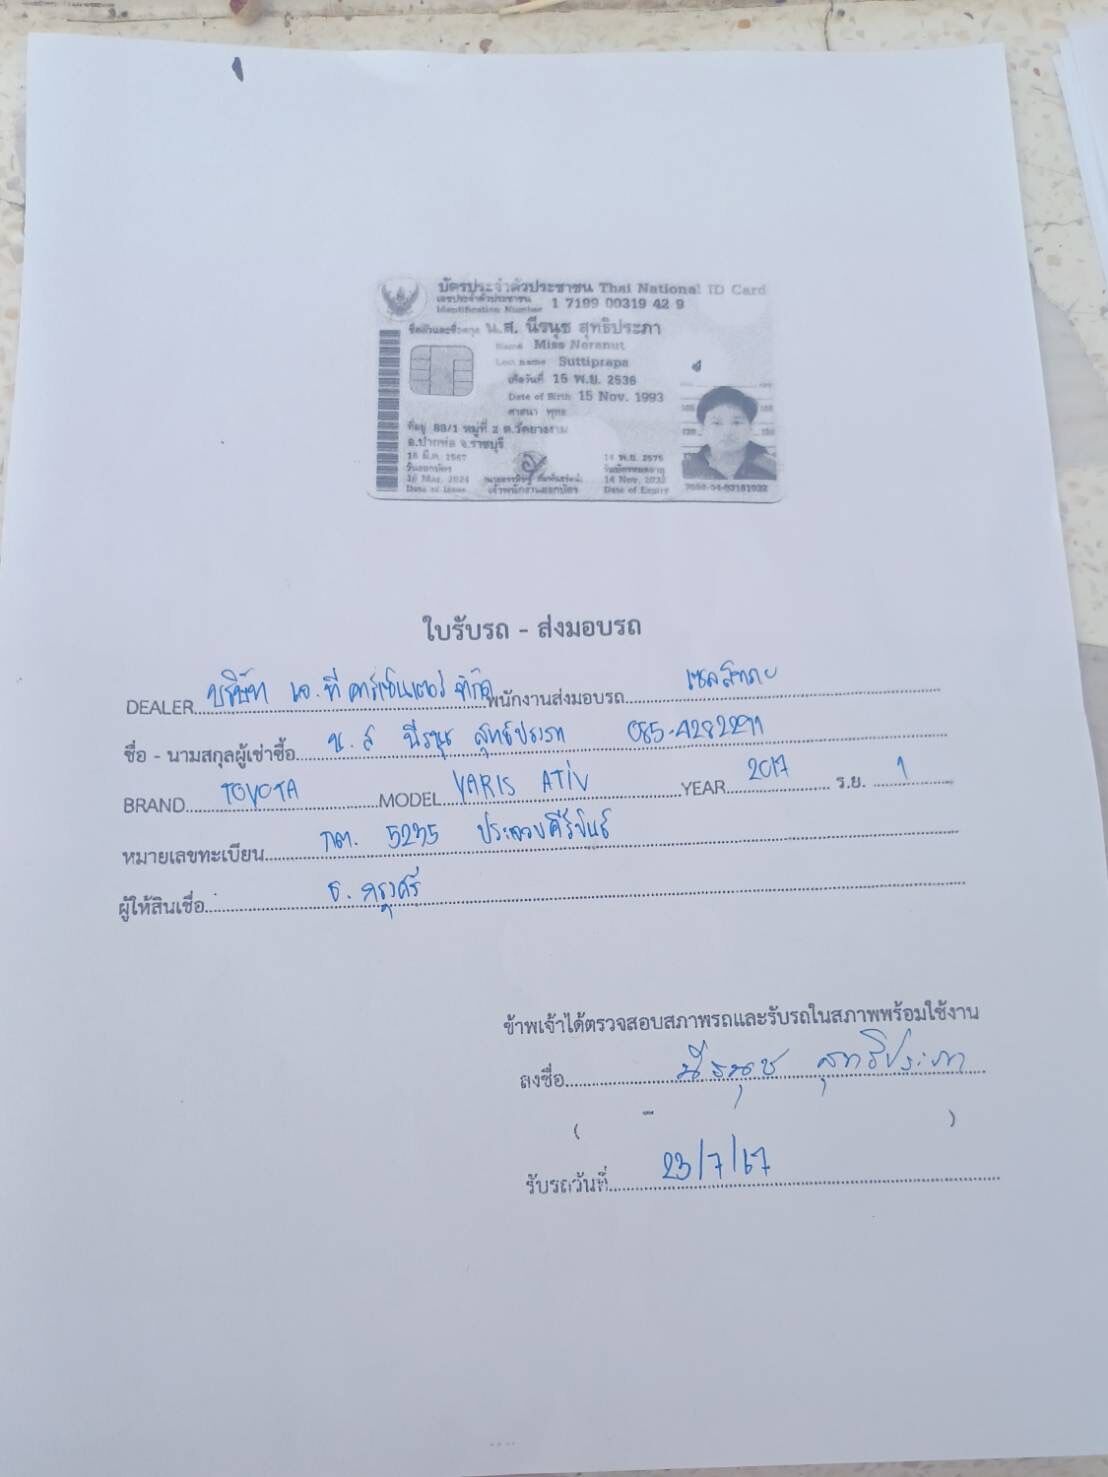 บัตรประจำตัวประชาชน Thai National ID Card
เลขประจำตัวประชาชน
Identification Number 1 7199 00319 42 9
ชื่อตัวและชื่อสกุล น.ส. นีรนุช สุทธิประภา
Name Miss Neranut
Last name Suttiprapa
เกิดวันที่ 15 พ.ย. 2536
Date of Birth 15 Nov. 1993
ศาสนา พุทธ
ที่อยู่ 88/1 หมู่ที่ 2 ต.วัดยางงาม
อ.ปากท่อ จ.ราชบุรี
วันออกบัตร
Date of Issue
เจ้าพนักงานออกบัตร
14 พ.ย. 2575
วันบัตรหมดอายุ
14 Nov. 2032
Date of Expiry
ใบรับรถ - ส่งมอบรถ
DEALER บริษัท เอ.ที คาร์เซ็นเตอร์ จำกัด พนักงานส่งมอบรถ
ชื่อ - นามสกุลผู้เช่าซื้อ น.ส นีรนุช สุทธิประภา 085-4282291
BRAND TOYOTA MODEL YARIS ATIV YEAR 2017 ร.ย. 1
หมายเลขทะเบียน กต. 5235 ประจวบคีรีขันธ์
ผู้ให้สินเชื่อ ธ. กรุงศรี
ข้าพเจ้าได้ตรวจสอบสภาพรถและรับรถในสภาพพร้อมใช้งาน
ลงชื่อ นีรนุช สุทธิประภา
( )
รับรถวันที่ 23/7/67